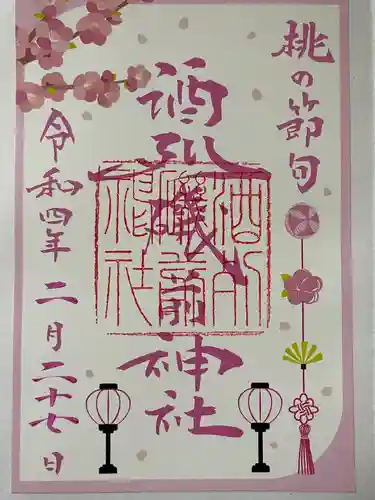 桃の節句
酒列磯前神社
令和四年 二月二十七日
酒列
磯前
神社